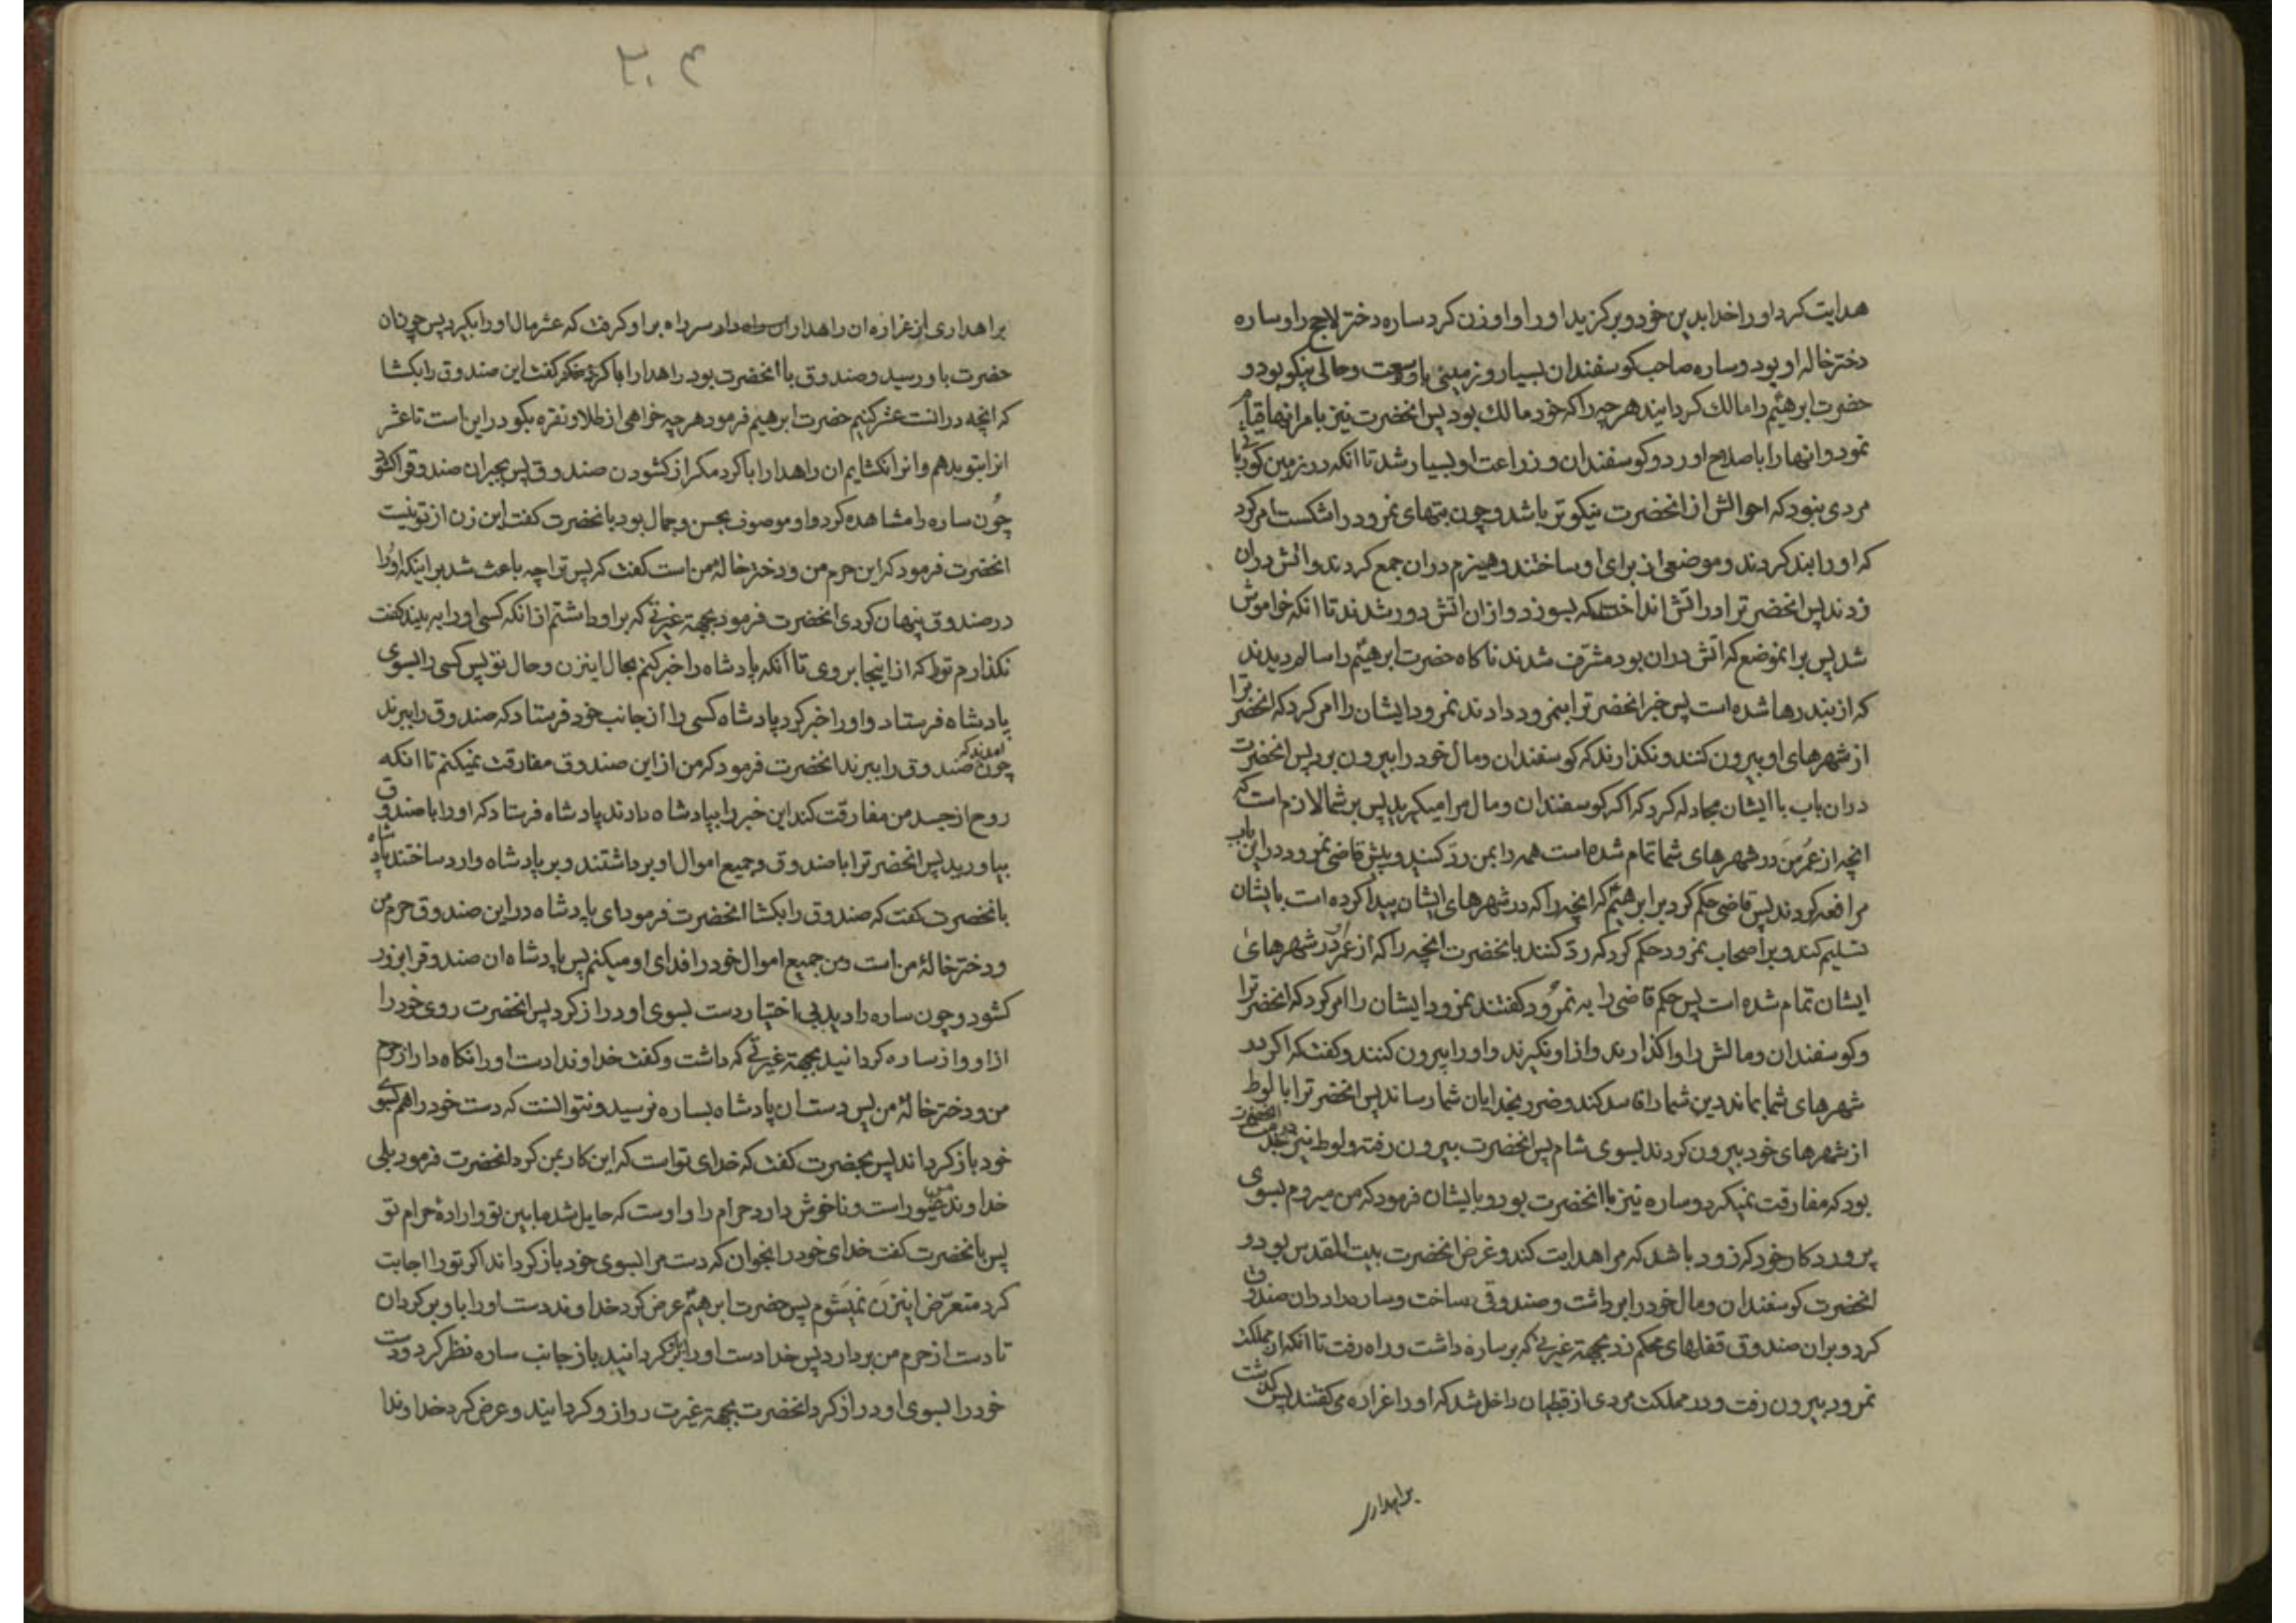 هدایت کرد اورا خدا بدین خود و برکزید اورا و او زن کرد ساره دختر لاحج را و ساره
دختر خاله او بود و ساره صاحب کوسفندان بسیار و زمینی با وسعت و حالی نیکو بود و
حضرت ابرهیم را مالک کردانید هر چیز را که خود مالک بود پس انحضرت نیز بامر انها قیام
نمود و انها را باصلاح اورد و کوسفندان و زراعت او بسیار شد تا انکه در زمین کوثی ربا
مردی نبود که احوالش از انحضرت نیکوتر باشد و چون بتهای نمرود را شکست امر کرد
که اورا بند کردند و موضعی از برای او ساختند و هیزم دران جمع کردند و اتش دران
زدند پس انحضرترا در اتش انداختند که بسوزد و از ان اتش دور شدند تا انکه خواموش
شد پس برانموضع که اتش دران بود مشرف شدند ناکاه حضرت ابرهیم را سالم دیدند
که از بند رها شده است پس خبر انحضرترا بنمرود دادند نمرود ایشان را امر کرد که انحضرترا
از شهرهای او بیرون کنند و نکذارند که کوسفندان و مال خود را بیرون برد پس انحضرت
دران باب با ایشان مجادله کرد که اکر کوسفندان و مال مرا میکیرید پس بر شما لازم است که
انچه از عمر من در شهرهای شما تمام شده است همه را بمن رد کنید و پیش قاضی نمرود در این باب
مرافعه کردند پس قاضی حکم کرد بر ابرهیم که انچه را که در شهرهای ایشان پیدا کرده است بایشان
تسلیم کند و بر اصحاب نمرود حکم کرد که رد کنند بانحضرت انچه را که از عمر او در شهرهای
ایشان تمام شده است پس حکم قاضی را به نمرود کفتند نمرود ایشان را امر کرد که انحضرترا
و کوسفندان و مالش را واکذارند و از او نکیرند و اورا بیرون کنند و کفت که اکر در
شهرهای شما بماند دین شما را فاسد کند و ضرر بخدایان شما رساند پس انحضرترا با لوط
از شهرهای خود بیرون کردند بسوی شام پس انحضرت بیرون رفته و لوط نیز در خدمت انحضرت
بود که مفارقت نمیکرد و ساره نیز با انحضرت بود و بایشان فرمود که من میروم بسوی
پروردکار خود که زود باشد که مرا هدایت کند و غرض انحضرت بیت المقدس بود و
انحضرت کوسفندان و مال خود را برداشت و صندوقی ساخت و ساره را دران صندوق
کرد و بران صندوق قفلهای محکم زد بجهة غیرتی که بر ساره داشت و راه رفت تا انکه از مملکت
نمرود بیرون رفت و در مملکت مردی از قبطیان داخل شد که اورا عراره می کفتند پس کذشت
براهداری
۲۰۴
براهداری از عراره ان راهدار سر راه بر او کرفت که عشر مال اورا بکیرد پس چون ان
حضرت باو رسید و صندوق با انحضرت بود راهدار کفت این صندوق را بکشا
که انچه در انست عشر کنیم حضرت ابرهیم فرمود هر چه خواهی از طلا و نقره بکو در این است تا عشر
انرا بتو بدهم و انرا نکشایم ان راهدار ابا کرد مکر از کشودن صندوق پس بجبر ان صندوقرا کشود
چون ساره را مشاهده کرد و او موصوف بحسن و جمال بود بانحضرت کفت این زن از تو نیست
انحضرت فرمود که این حرم من و دختر خالهٔ من است کفت که پس ترا چه باعث شد بر اینکه اورا
در صندوق پنهان کردی انحضرت فرمود بجهة غیرتی که بر او داشتم از انکه کسی اورا به بیند کفت
نکذارم تو را که از اینجا بروی تا انکه پادشاه را خبر کنم بحال این زن و حال تو پس کسی را بسوی
پادشاه فرستاد و اورا خبر کرد پادشاه کسی را از جانب خود فرستاد که صندوق را ببرند
چون امدند که صندوق را ببرند انحضرت فرمود که من از این صندوق مفارقت نمیکنم تا انکه
روح از جسد من مفارقت کند این خبر را بپادشاه دادند پادشاه فرستاد که اورا با صندوق
بیاورید پس انحضرترا با صندوق و جمیع اموال او برداشتند و بر پادشاه وارد ساختند پادشاه
بانحضرت کفت که صندوق را بکشا انحضرت فرمود ای پادشاه در این صندوق حرم من
و دختر خالهٔ من است و من جمیع اموال خود را فدای او میکنم پس پادشاه ان صندوقرا بزور
کشود و چون ساره را دید بی اختیار دست بسوی او دراز کرد پس انحضرت روی خود را
از او و از ساره کردانید بجهة غیرتی که داشت و کفت خداوندا دست اورا نکاه دار از حرم
من و دختر خالهٔ من پس دست ان پادشاه بساره نرسید و نتوانست که دست خود را هم بسوی
خود باز کرداند پس بحضرت کفت که خدای تو است که این کار بمن کرد انحضرت فرمود بلی
خداوند من غیور است و ناخوش دارد حرام را و اوست که حایل شد مابین تو و ارادهٔ حرام تو
پس بانحضرت کفت خدای خود را بخوان که دست مرا بسوی خود باز کرداند اکر تو را اجابت
کرد متعرض این زن نمیشوم پس حضرت ابرهیم عرض کرد خداوندا دست اورا باو برکردان
تا دست از حرم من بردارد پس خدا دست اورا باو کردانید باز جانب ساره نظر کرد و دست
خود را بسوی او دراز کرد انحضرت بجهة غیرت رو از او کردانید و عرض کرد خداوندا